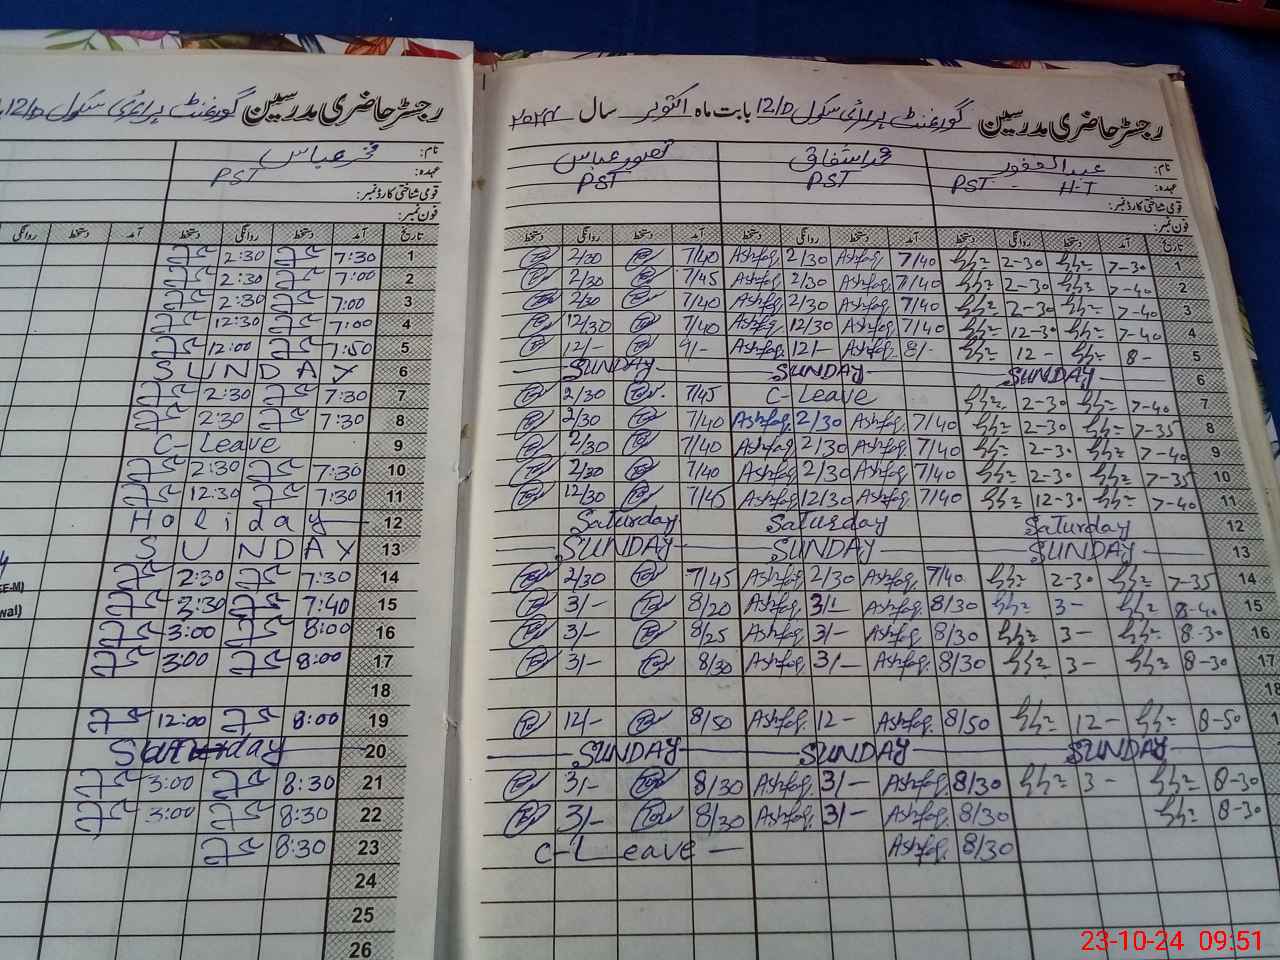 رجسٹر حاضری مدرسین گورنمنٹ پرائمری سکول 12/D
نام: فخر عباس
عہدہ: PST
قومی شناختی کارڈ نمبر:
فون نمبر:
تاریخ آمد دستخط روانگی دستخط آمد دستخط روانگی
1 7:30 2:30
2 7:00 2:30
3 7:00 2:30
4 7:00 12:30
5 7:50 12:00
6 SUNDAY
7 7:30 2:30
8 7:30 2:30
9 C-Leave
10 7:30 2:30
11 7:30 12:30
12 Holiday
13 SUNDAY
14 7:30 2:30
15 7:40 2:30
16 8:00 3:00
17 8:00 3:00
18
19 8:00 12:00
20 Sunday
21 8:30 3:00
22 8:30 3:00
23 8:30
24
25
26
SE-M)
wal)
رجسٹر حاضری مدرسین گورنمنٹ پرائمری سکول 12/D بابت ماہ اکتوبر سال ۲۰۲۴
نام: عبدالغفور محمد اشفاق تصور عباس
عہدہ: PST - H-T PST PST
قومی شناختی کارڈ نمبر:
فون نمبر:
تاریخ آمد دستخط روانگی دستخط آمد دستخط روانگی دستخط آمد دستخط روانگی دستخط
2/30 7/40 Ashfaq 2/30 Ashfaq 7/40 2-30 7-30 1
2/30 7/45 Ashfaq 2/30 Ashfaq 7/40 2-30 7-40 2
2/30 7/40 Ashfaq 2/30 Ashfaq 7/40 2-30 7-40 3
12/30 7/40 Ashfaq 12/30 Ashfaq 7/40 12-30 7-40 4
12/- Ashfaq 12/- Ashfaq 8/- 12- 8- 5
SUNDAY SUNDAY SUNDAY 6
2/30 7/45 C-Leave 2-30 7-40 7
2/30 7/40 Ashfaq 2/30 Ashfaq 7/40 2-30 7-35 8
2/30 7/40 Ashfaq 2/30 Ashfaq 7/40 2-30 7-40 9
2/30 7/40 Ashfaq 2/30 Ashfaq 7/40 2-30 7-35 10
12/30 7/45 Ashfaq 12/30 Ashfaq 7/40 12-30 7-40 11
Saturday Saturday Saturday 12
SUNDAY SUNDAY SUNDAY 13
2/30 7/45 Ashfaq 2/30 Ashfaq 7/40 2-30 7-35 14
3/- 8/20 Ashfaq 3/- Ashfaq 8/30 3- 8-40 15
3/- 8/25 Ashfaq 3/- Ashfaq 8/30 3- 8-30 16
3/- 8/30 Ashfaq 3/- Ashfaq 8/30 3- 8-30 17
18
12/- 8/50 Ashfaq 12- Ashfaq 8/50 12- 8-50 1
SUNDAY SUNDAY SUNDAY
3/- 8/30 Ashfaq 3/- Ashfaq 8/30 3- 8-30
3/- 8/30 Ashfaq 3/- Ashfaq 8/30 8-30
C-Leave Ashfaq 8/30
23-10-24 09:51